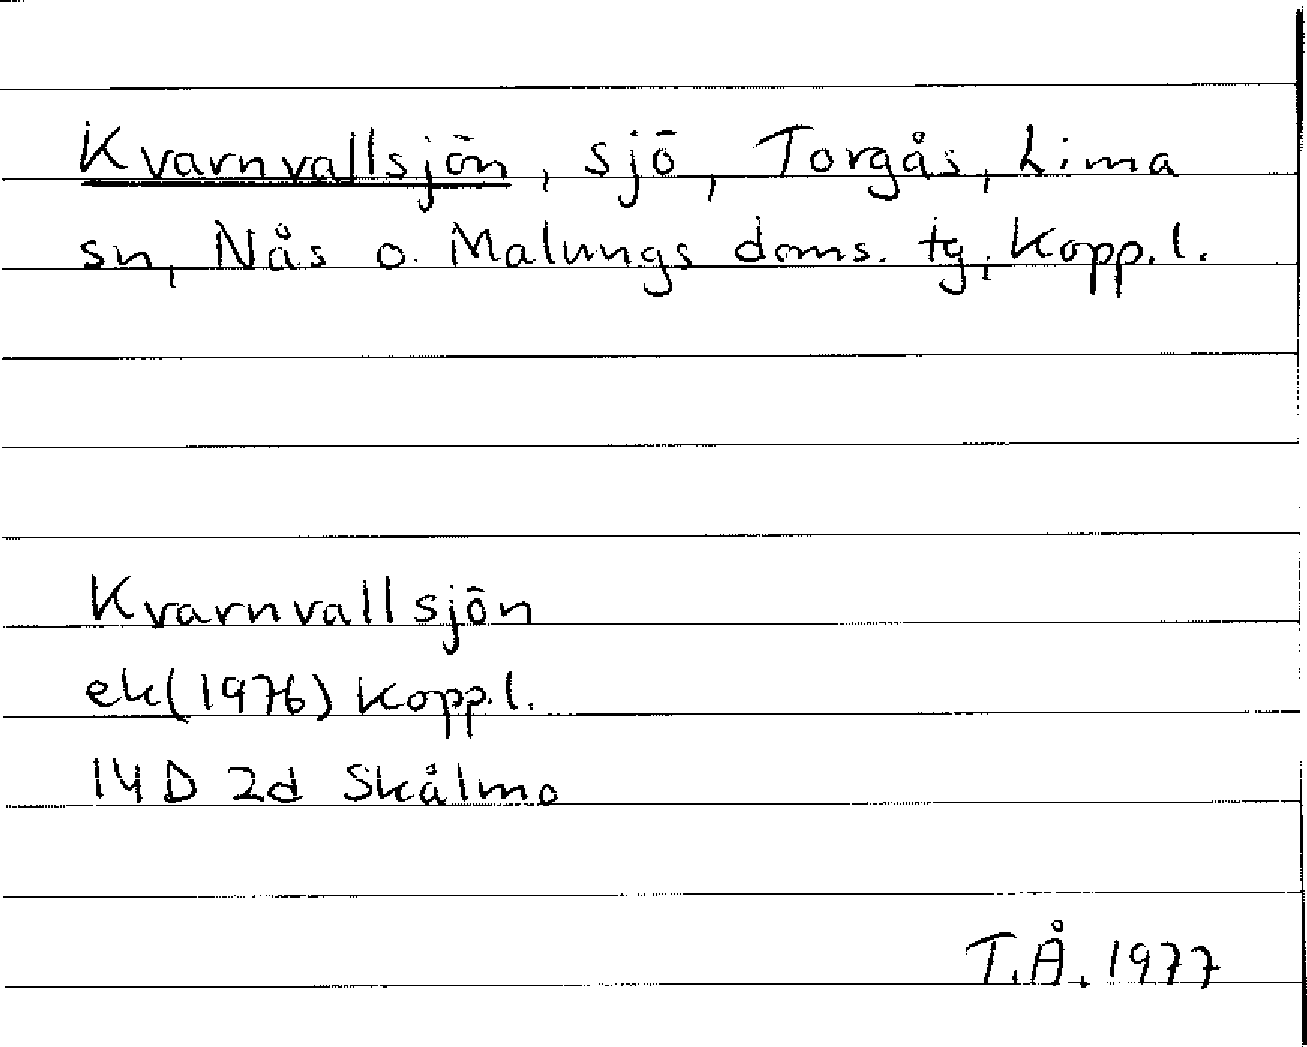 Kvarnvallsjön, sjö, Torgås, Lima
sn, Nås o. Malungs doms. tg, Kopp.l.
Kvarnvallsjön
ek(1976) Kopp.l.
14D 2d Skålmo
T.Å. 1977